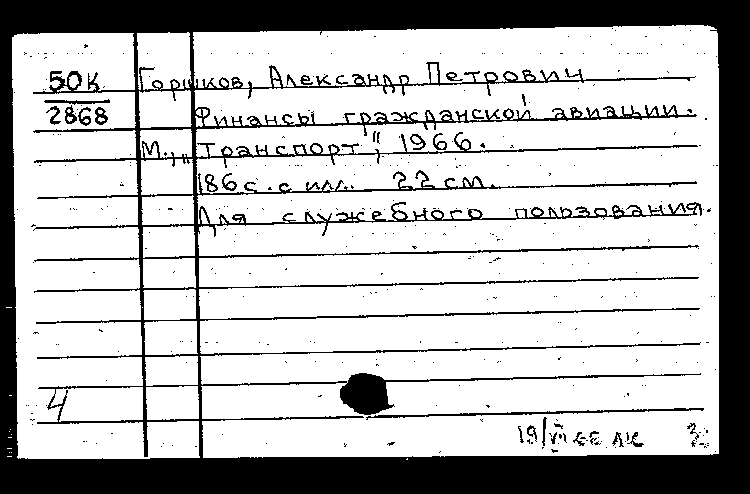 50К Горшков, Александр Петрович
2868 Финансы гражданской авиации.
М., „Транспорт“, 1966.
186 с. с илл. 22 см.
Для служебного пользования.
4
19/VII 66 ЛК